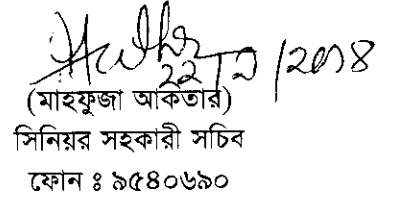 ২২/১/২০১৪
(মাহফুজা আকতার)
সিনিয়র সহকারী সচিব
ফোন ঃ ৯৫৪০৬৯০